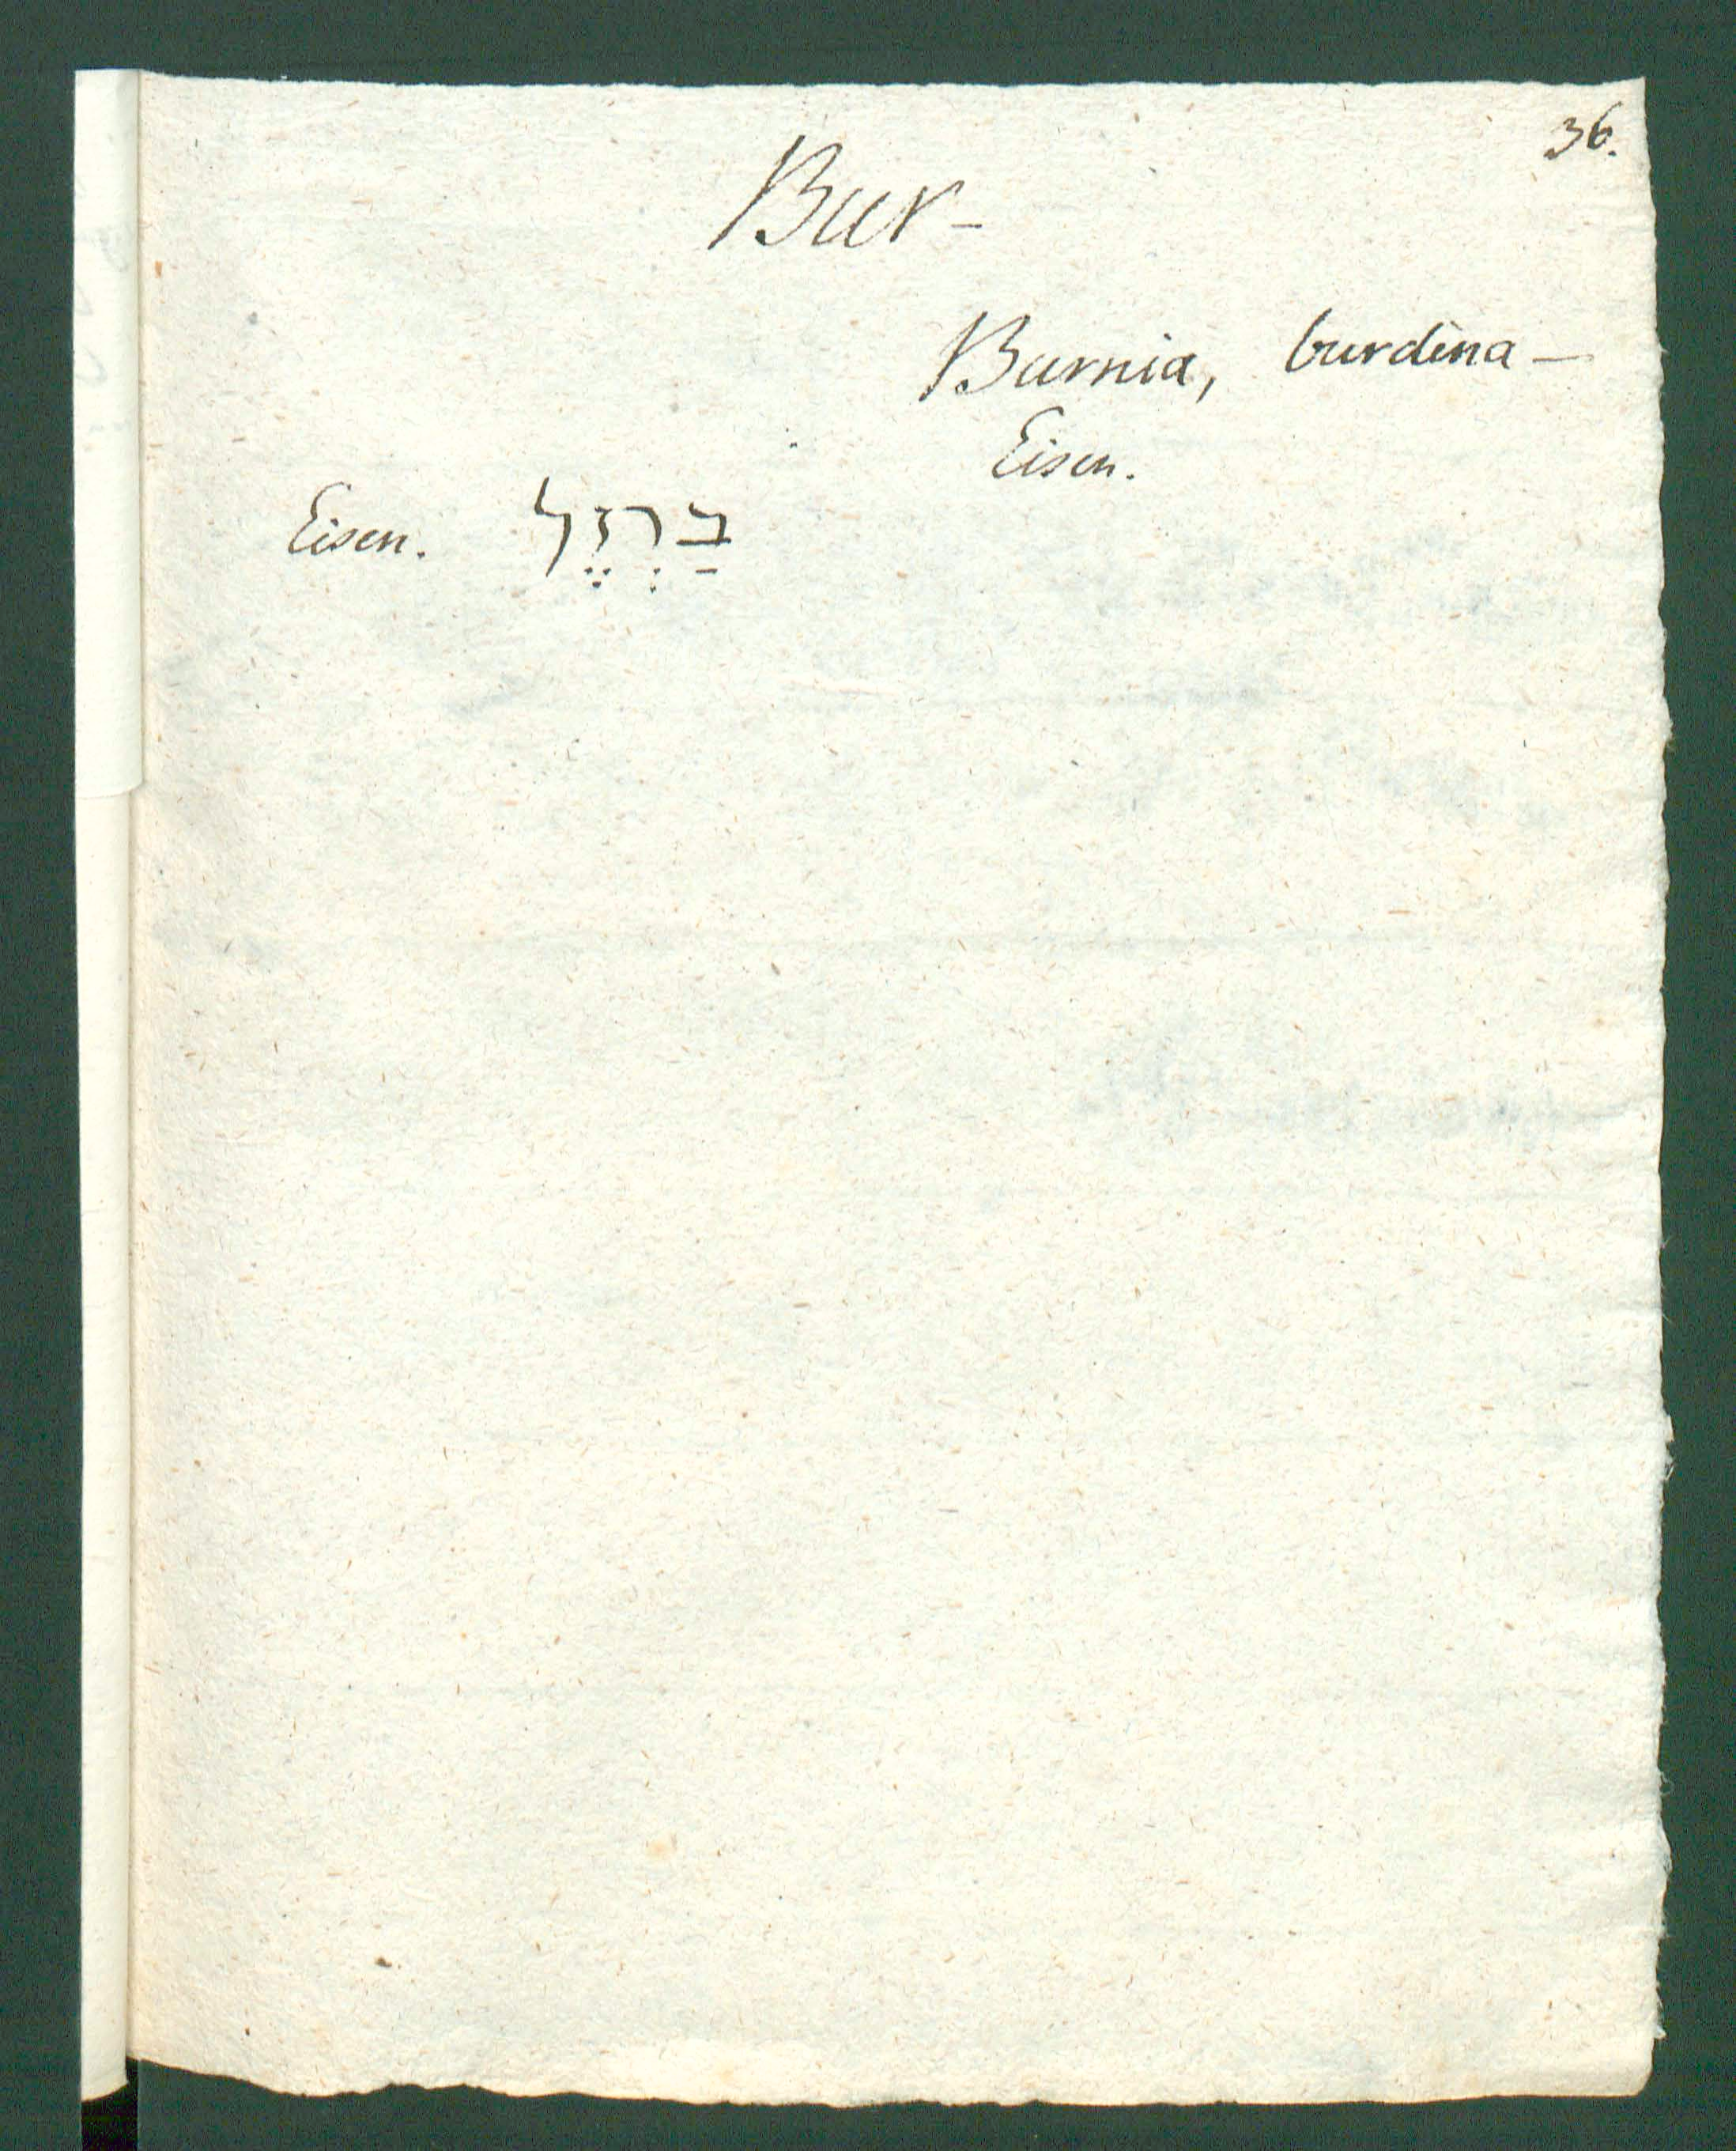 36.
Bur-
Burnia, burdina —
Eisen.
Eisen. בַרְזֶל